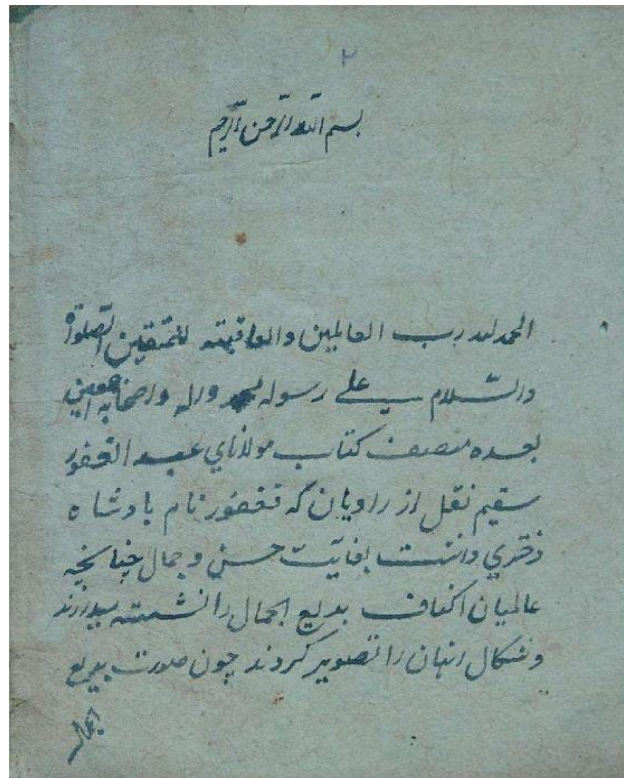 ٢
بسم الله الرحمن الرحيم
الحمد لله رب العالمين والعاقبته للمتقين الصلوة
والسلام على رسوله محمد واله واصحابه اجمعين
بعده مصنف كتاب مولاناي عبد الغفور
سقيم نقل از راويان كه فغفور نام بادشاه
دختري داشت بغايت حسن و جمال چنانچه
عالميان اكناف بديع الجمال را
وشكال ايشان را تصوير كردند چون صورت بديع
جمال